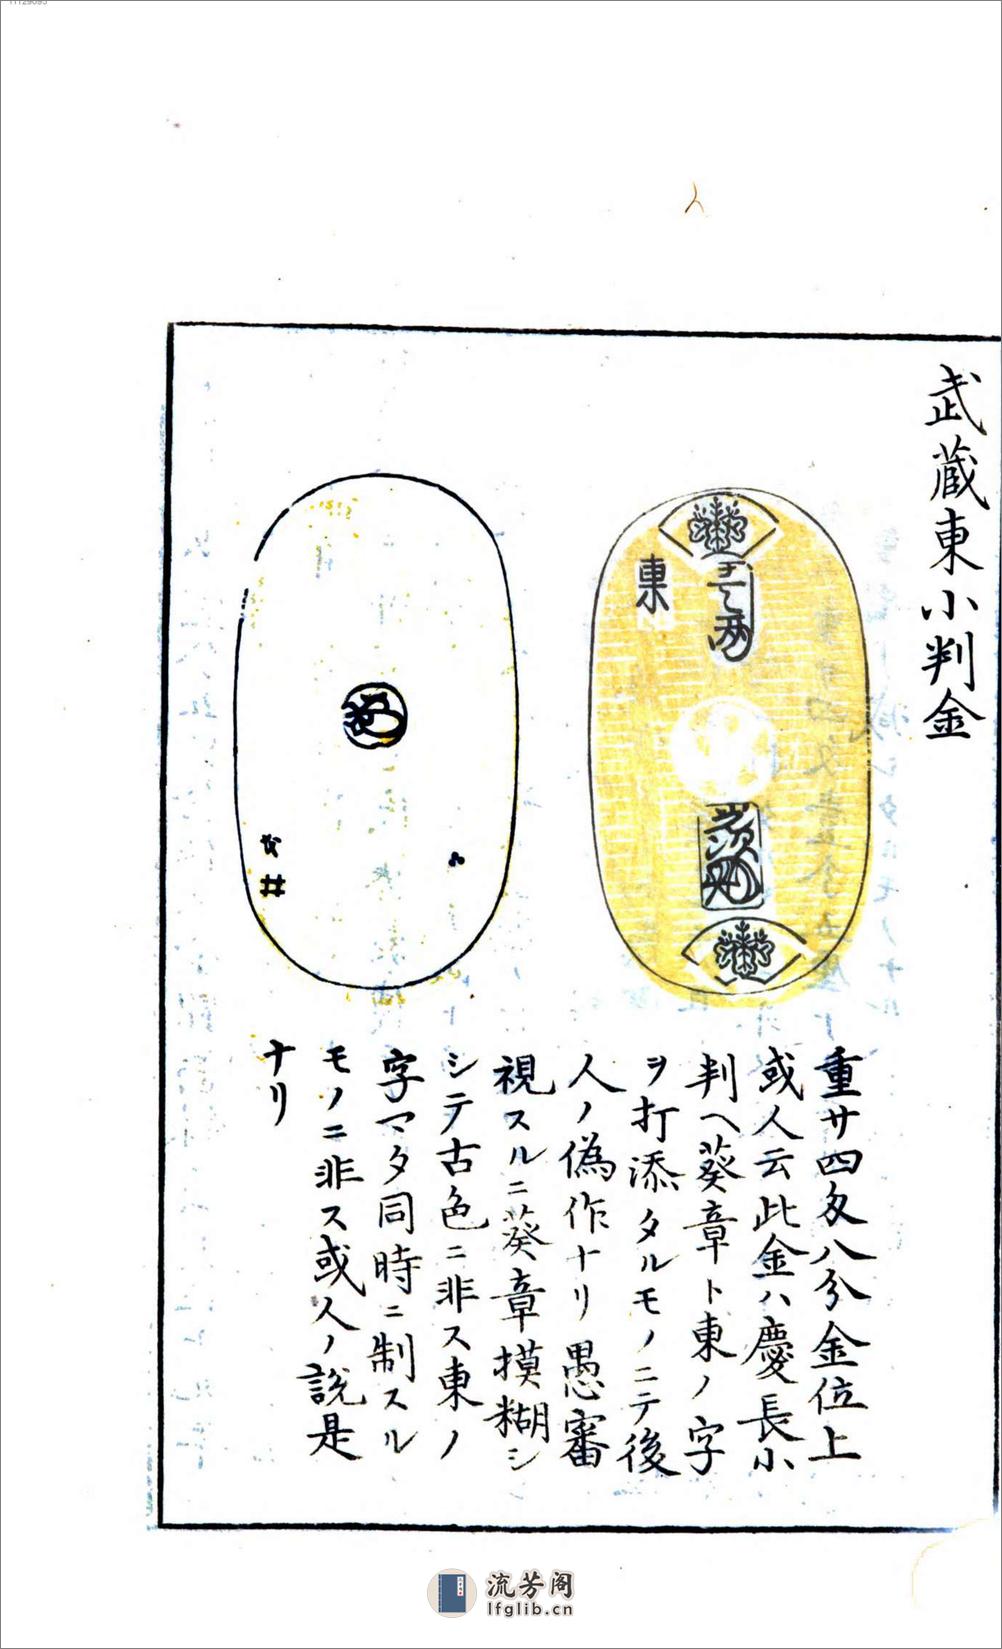 武蔵東小判金
東
壱両
重サ四匁八分金位上
或人云此金ハ慶長小
判ヘ葵章ト東ノ字
ヲ打添タルモノニテ後
人ノ偽作ナリ愚審
視スルニ葵章摸糊シ
シテ古色ニ非ス東ノ
字マタ同時ニ制スル
モノニ非ス或人ノ説是
ナリ
流芳阁
lfglib.cn